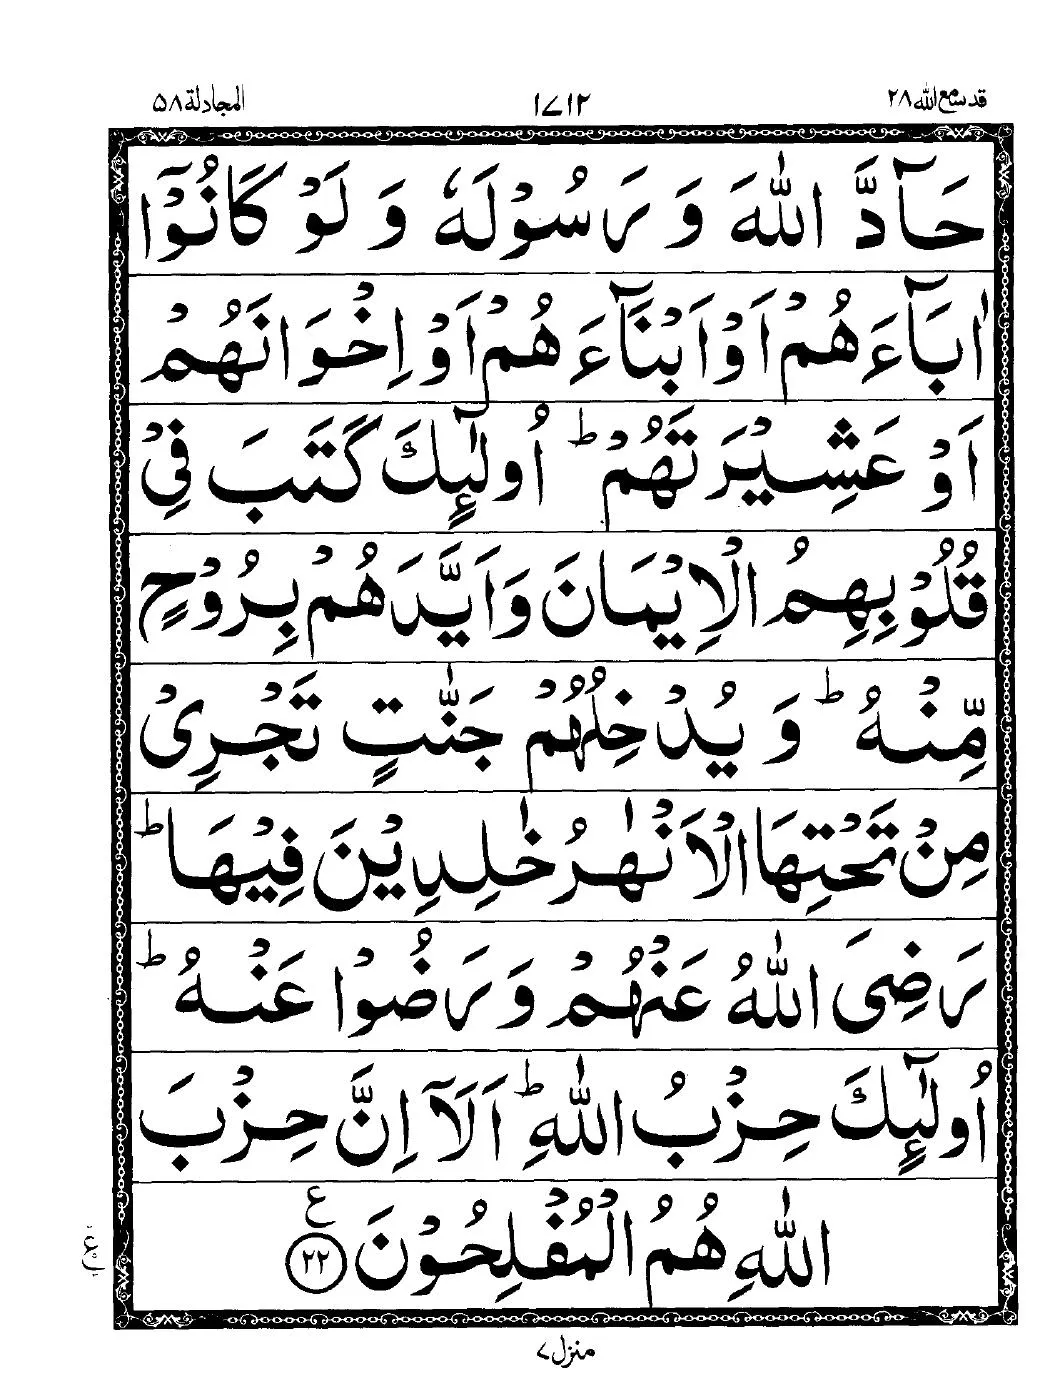 قد سمع الله ٢٨ ١٧١٢ المجادلة ٥٨
حَآدَّ اللّٰهَ وَ رَسُوْلَهٗ وَ لَوْ كَانُوْۤا
اٰبَآءَهُمْ اَوْ اَبْنَآءَهُمْ اَوْ اِخْوَانَهُمْ
اَوْ عَشِيْرَتَهُمْ ؕ اُولٰٓئِكَ كَتَبَ فِيْ
قُلُوْبِهِمُ الْاِيْمَانَ وَ اَيَّدَهُمْ بِرُوْحٍ
مِّنْهُ ؕ وَ يُدْخِلُهُمْ جَنّٰتٍ تَجْرِيْ
مِنْ تَحْتِهَا الْاَنْهٰرُ خٰلِدِيْنَ فِيْهَا ؕ
رَضِيَ اللّٰهُ عَنْهُمْ وَ رَضُوْا عَنْهُ ؕ
اُولٰٓئِكَ حِزْبُ اللّٰهِ ؕ اَلَاۤ اِنَّ حِزْبَ
اللّٰهِ هُمُ الْمُفْلِحُوْنَ ع ٢٢
منزل ٧